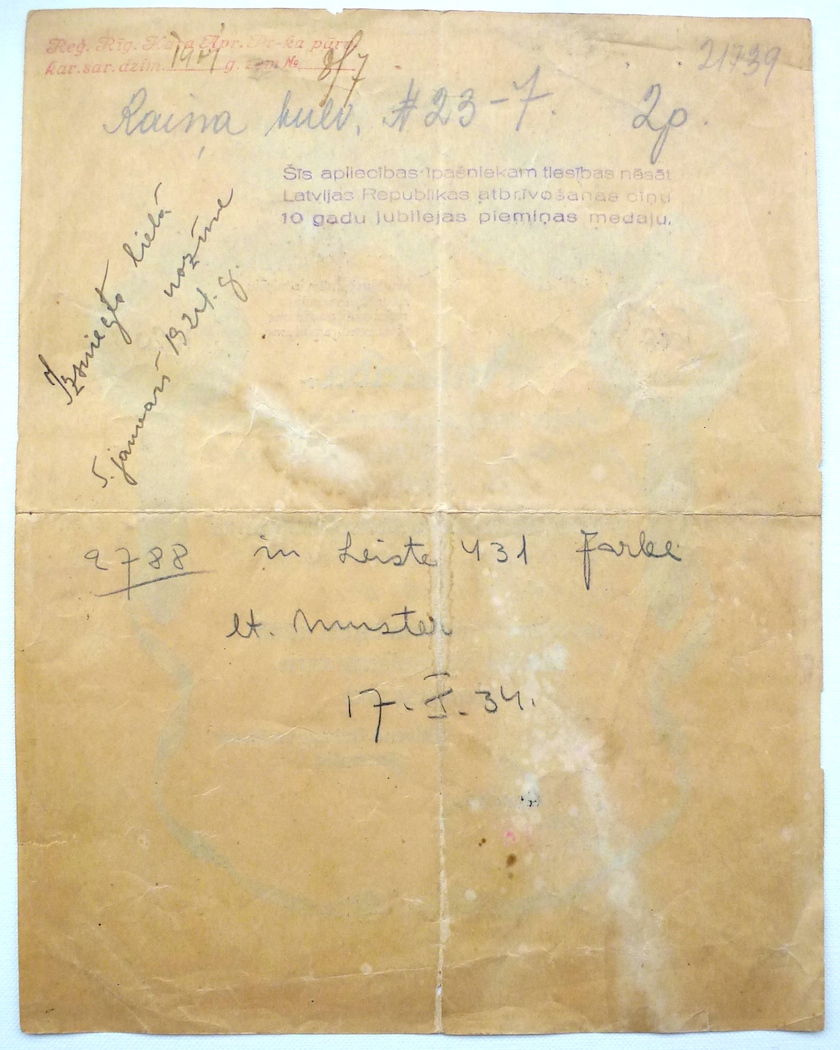 Reģ. Rīg. Kara Apr. Pr-ka pārv.
kar. sar. dzim. 1901 g. № 8/7
21739
Raiņa bulv. # 23-7. 2p.
Šīs apliecības īpašniekam tiesības nēsāt
Latvijas Republikas atbrīvošanas ciņu
10 gadu jubilejas piemiņas medaļu.
Izsniegta lielā
nozīme
5. janvarī 1924. g.
2788 in Leiste 431 Farbe
lt. Muster
17. I. 34.